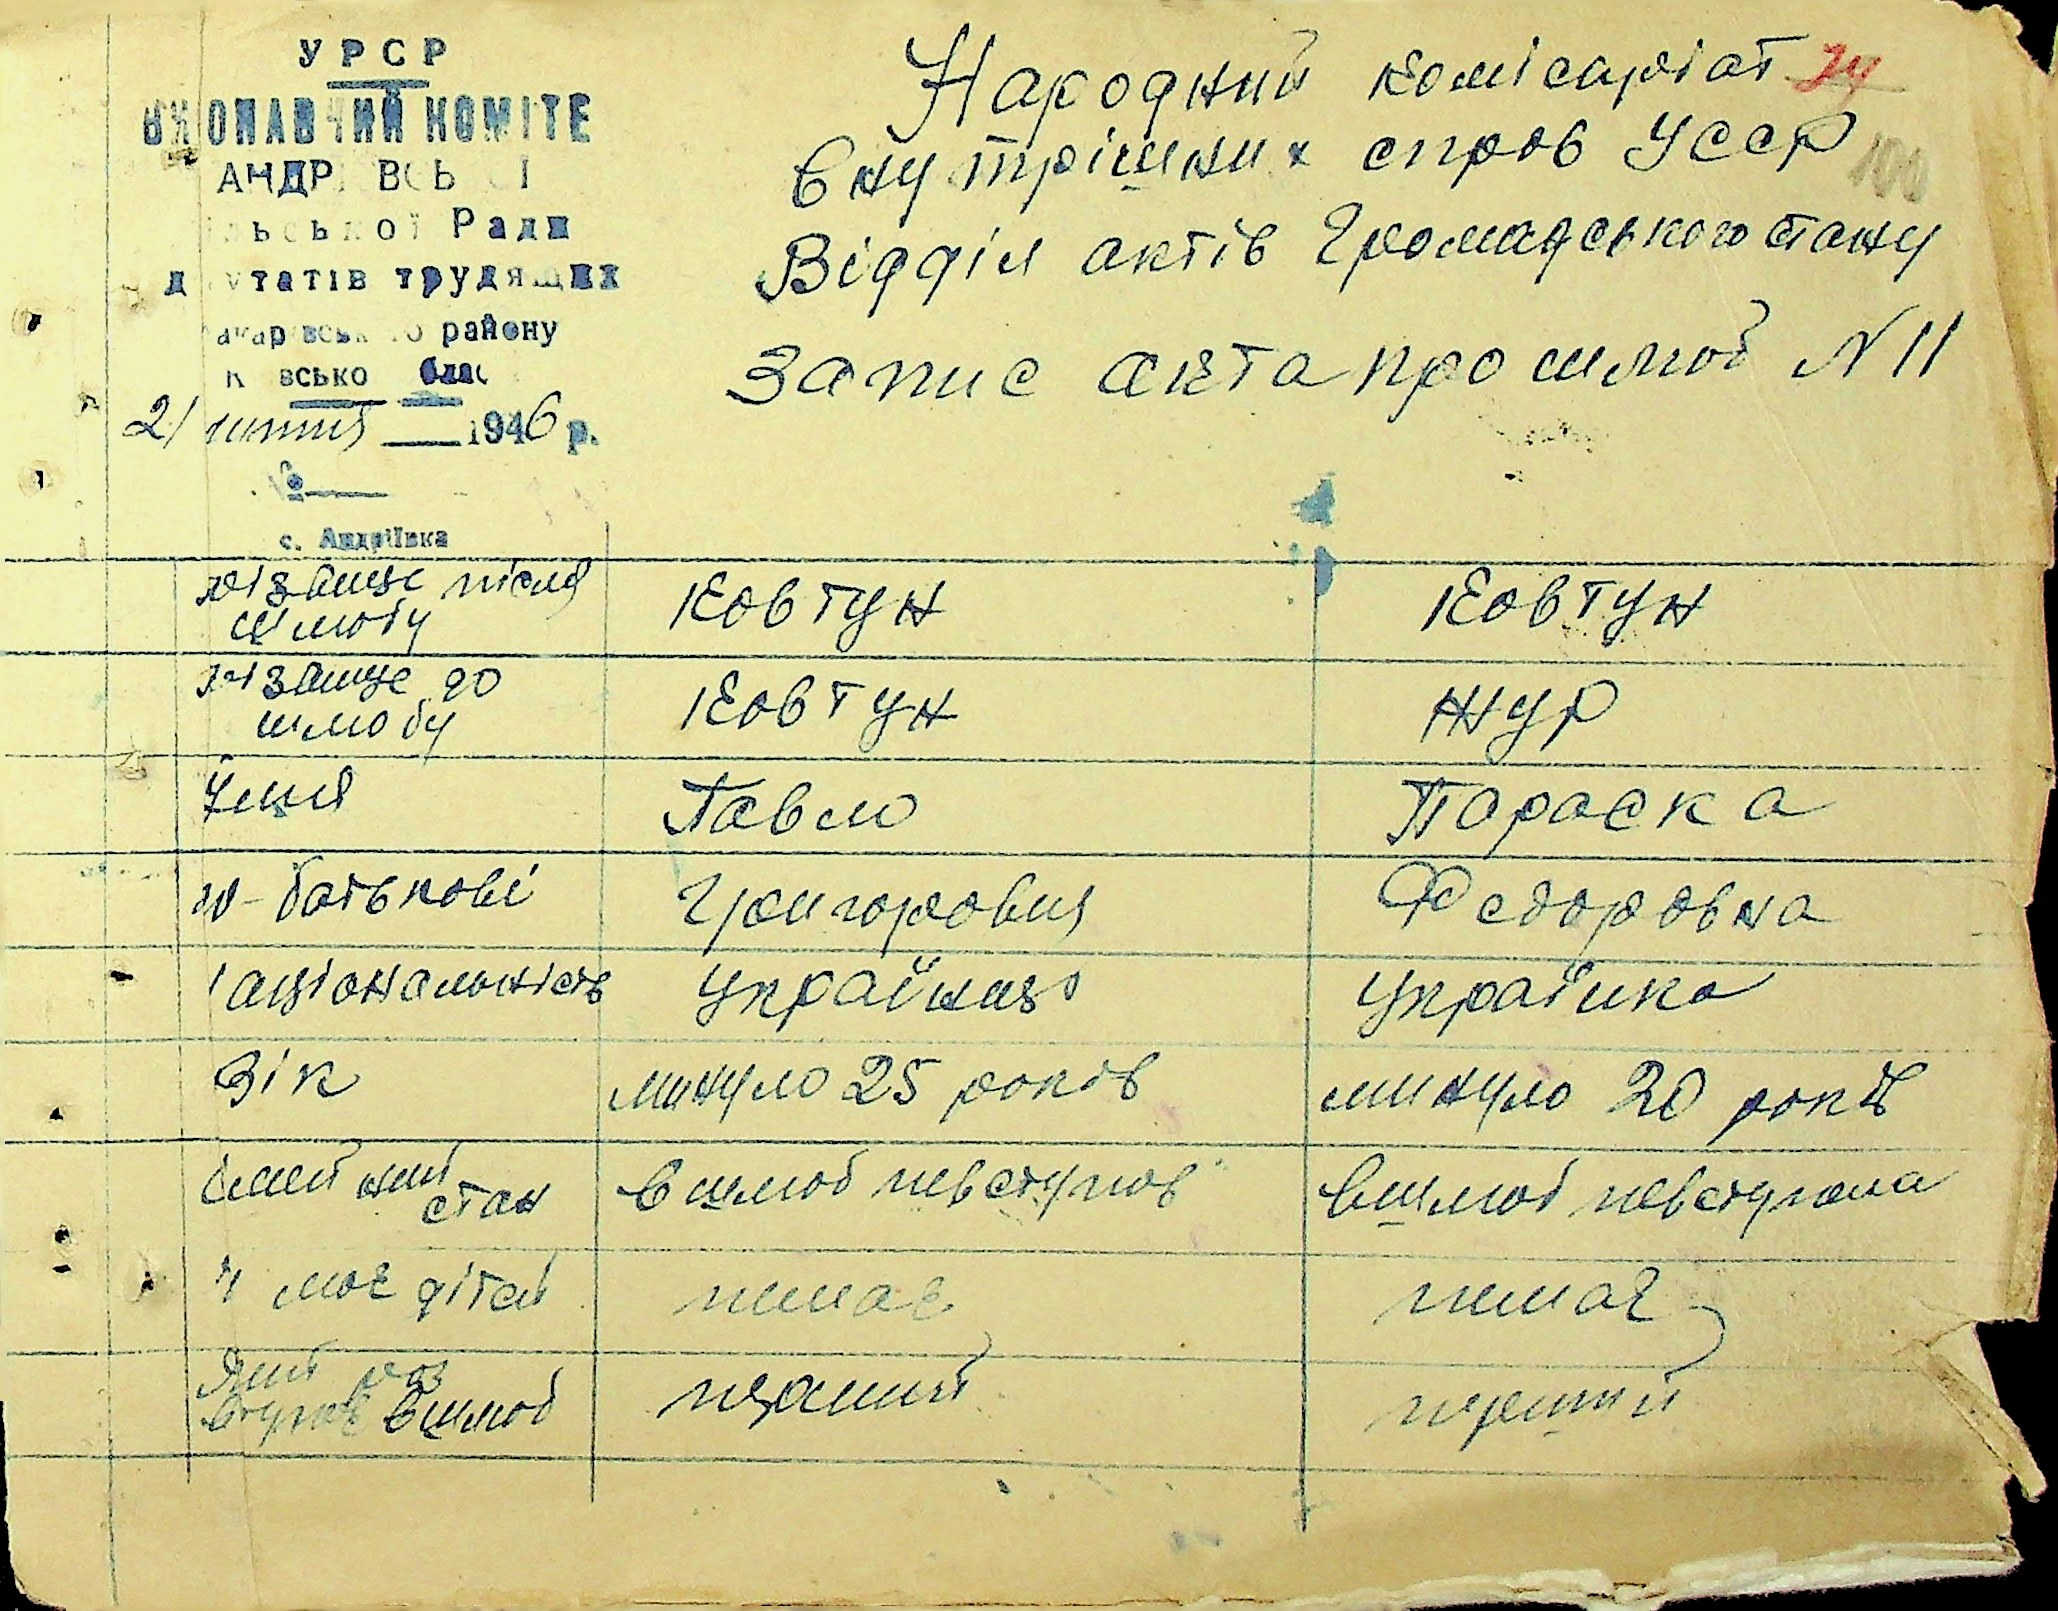 УРСР
ВИКОНАВЧИЙ КОМІТЕ
АНДРІЇВСЬКОЇ
ільської Ради
депутатів трудящих
Макарівського району
Київської облас
21 лютня 1946 р.
№
с. Андріївка
Народний комісаріат 74
внутрішних справ УССР 100
Відділ актів Громадського стану
Запис акта про шлюб N 11
прізвище після шлюбу Ковтун Ковтун
прізвище до шлюбу Ковтун Жур
Імня Павло Параска
по-батькові Григорович Федоровна
національність Українець Українка
Вік минуло 25 років минуло 20 років
Сімейний стан в шлюб невступов вшлюб невступала
Чи має дітей немає немає
Який раз вступає вшлюб перший перший